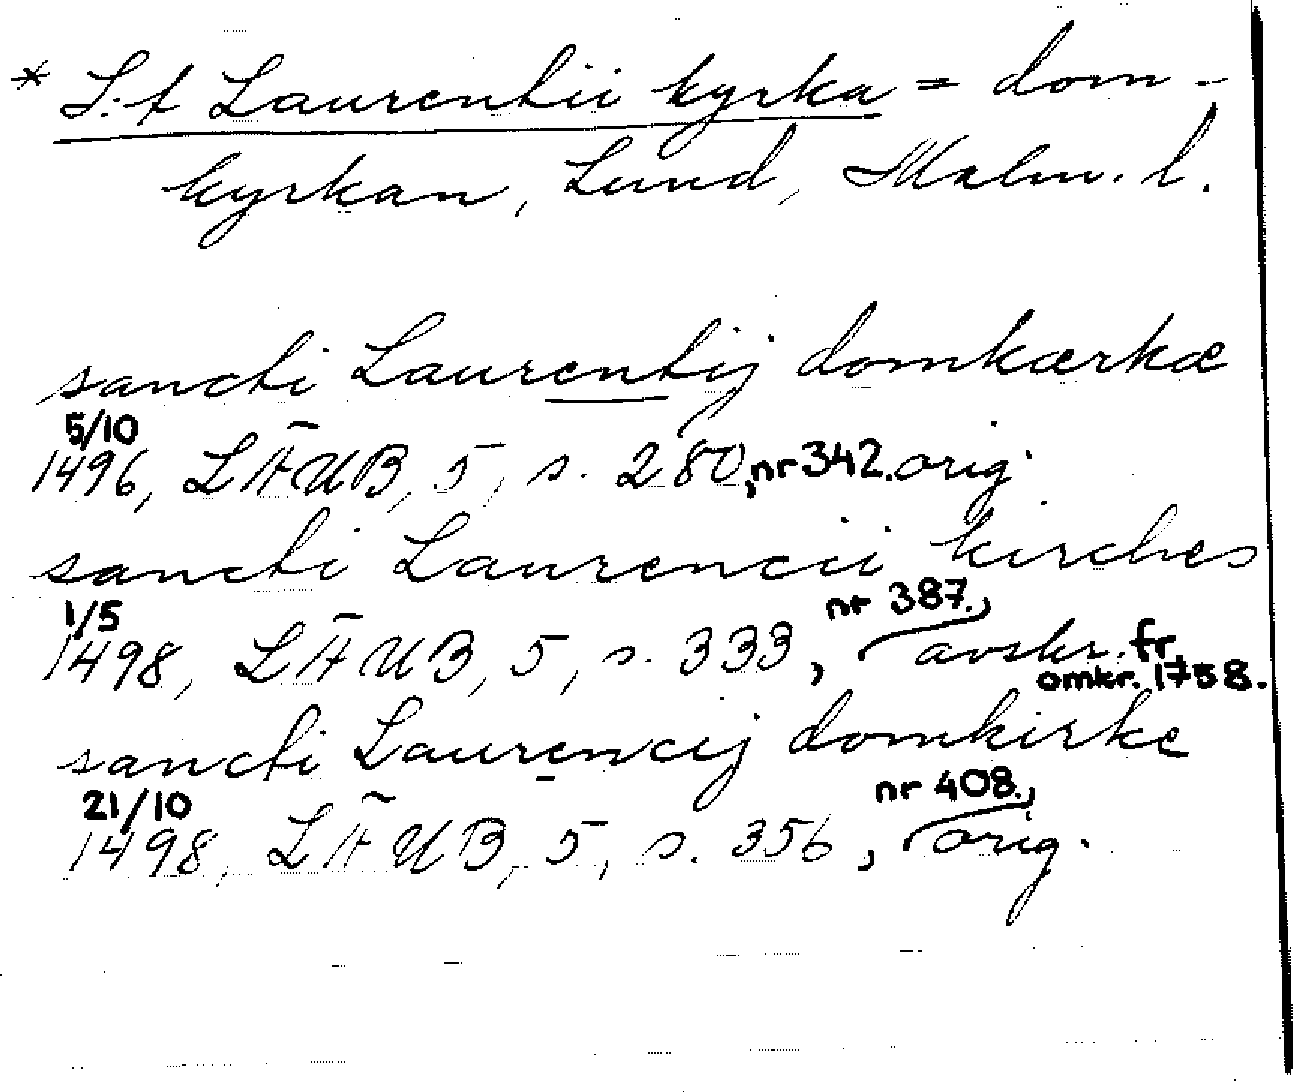 * S:t Laurentii kyrka = dom-
kyrkan, Lund, Malm. l.
sancti Laurentij domkærkæ
5/10
1496, LÄUB, 5, s. 280, nr 342. orig.
sancti Laurencii kirches
1/5
1498, LÄUB, 5, s. 333, nr 387., avskr. fr. omkr. 1758.
sancti Laurencij domkirke
21/10
1498, LÄUB, 5, s. 356, nr 408., orig.